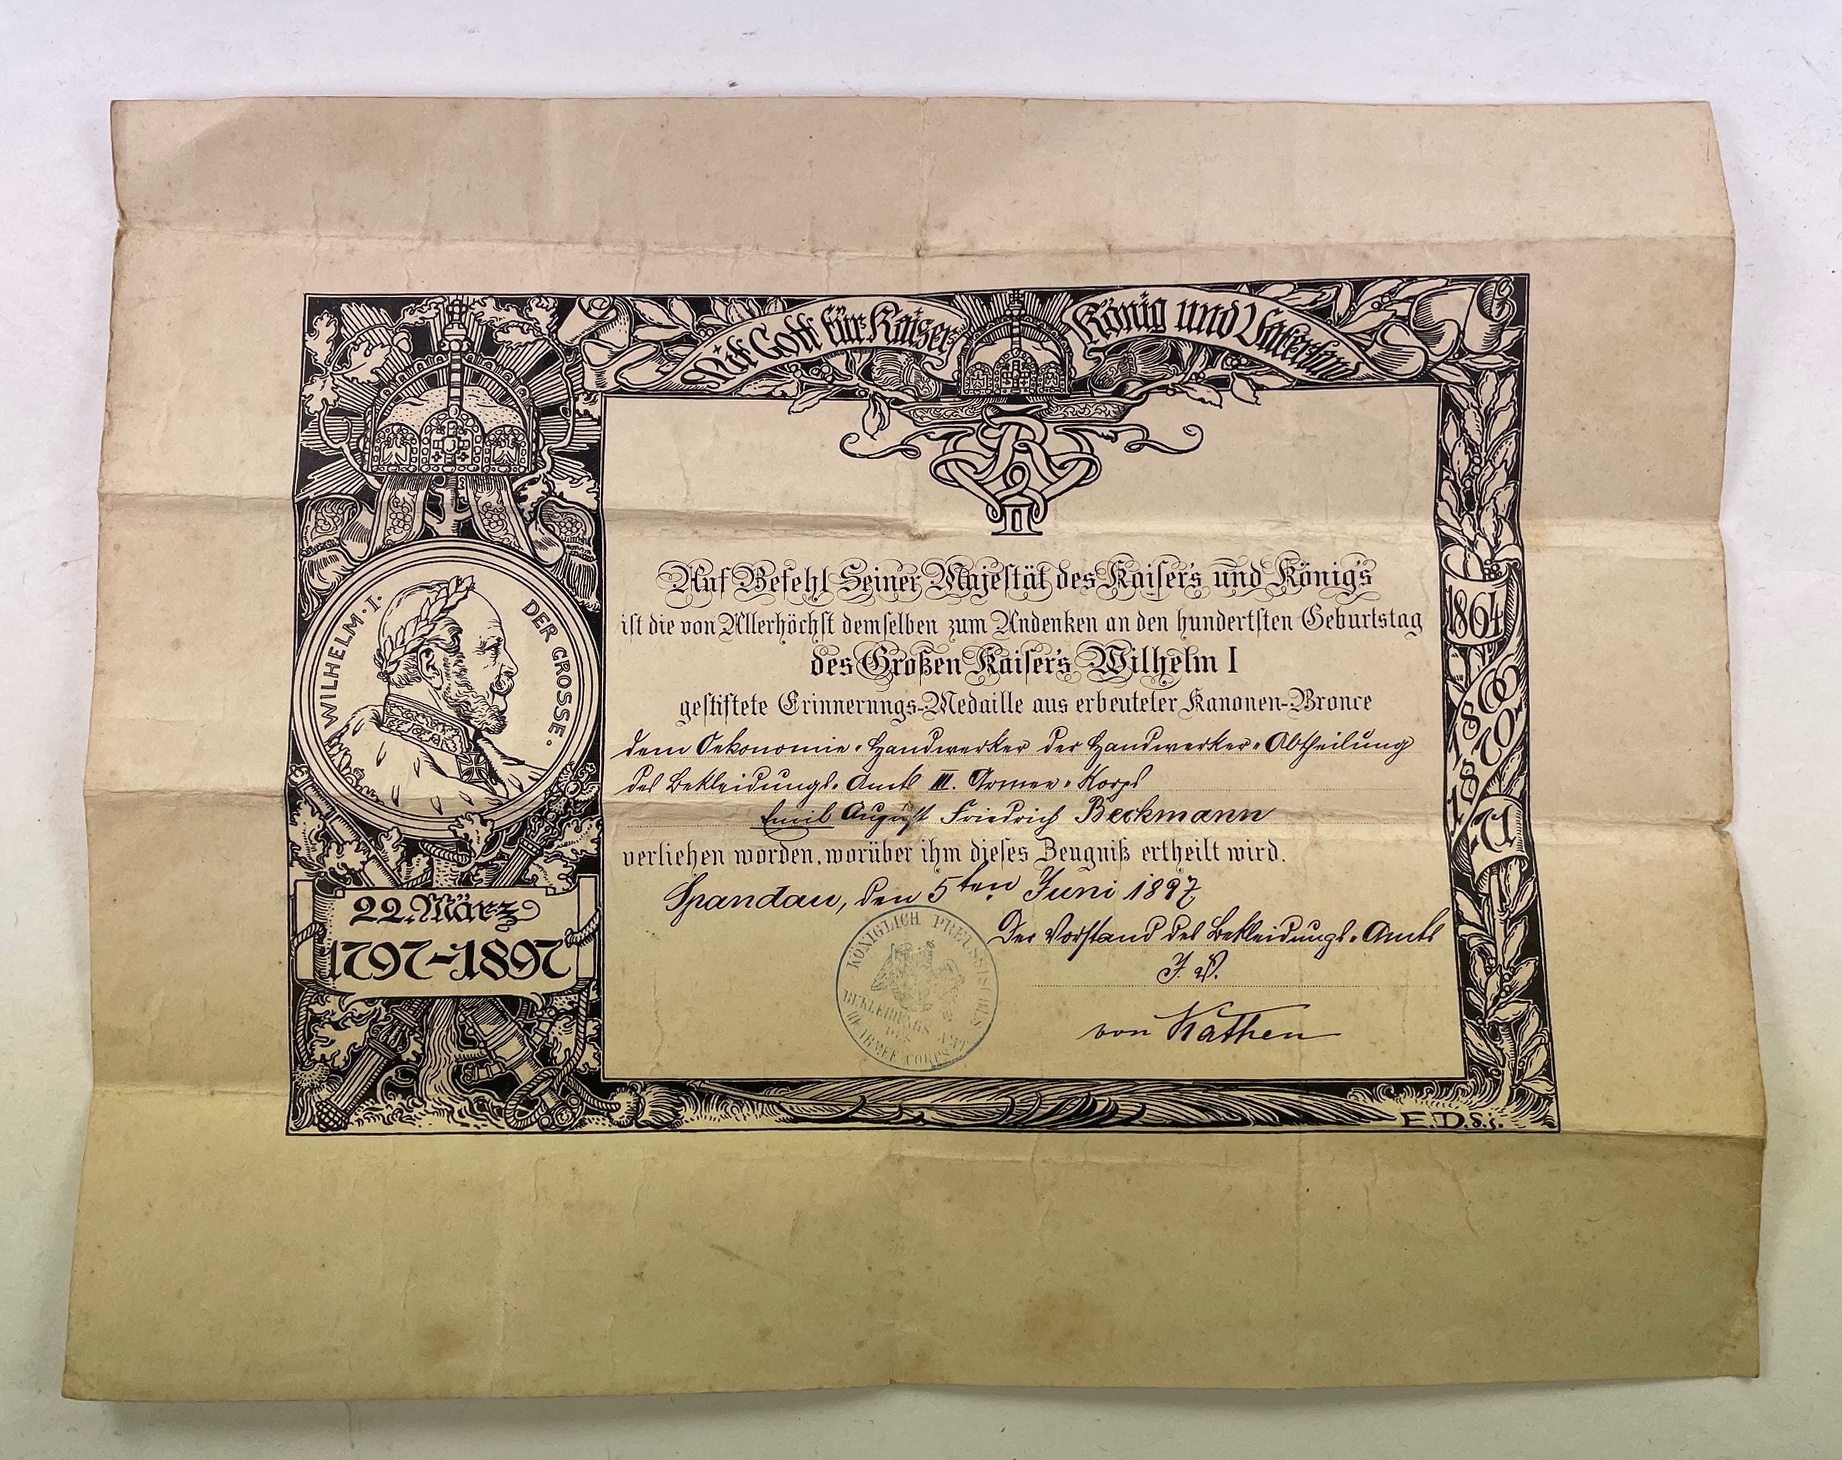 Mit Gott für Kaiser König und Vaterland
WILHELM · I · DER GROSSE ·
22. März
1797–1897
1864
1866
1870
1871
Auf Befehl Seiner Majestät des Kaisers und Königs
ist die von Allerhöchst demselben zum Andenken an den hundertsten Geburtstag
des Großen Kaisers Wilhelm I
gestiftete Erinnerungs-Medaille aus erbeuteter Kanonen-Bronce
dem Oekonomie-Handwerker der Handwerker-Abtheilung
des Bekleidungs-Amts III. Armee-Korps
Emil August Friedrich Beckmann
verliehen worden, worüber ihm dieses Zeugniß ertheilt wird.
Spandau, den 5ten Juni 1897
Der Vorstand des Bekleidungs-Amts
I. V.
von Kathen
KÖNIGLICH PREUSSISCHES
BEKLEIDUNGS-AMT
DES
III ARMEE CORPS
E.D.